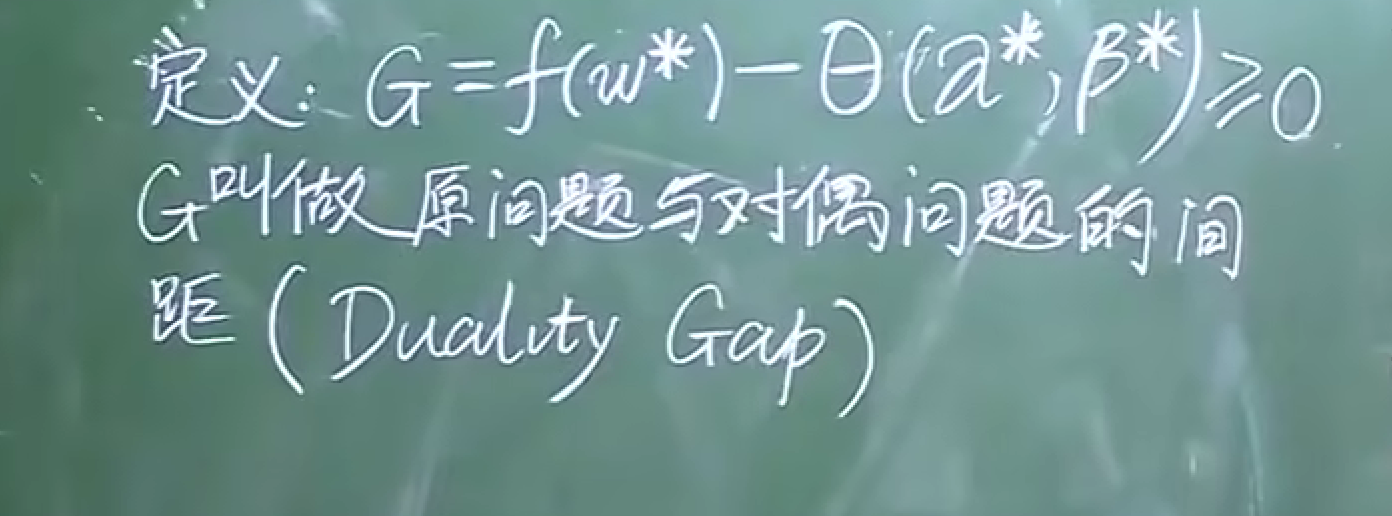 定义: G=f(w*)-θ(α*,β*)≥0
G叫做原问题与对偶问题的间
距(Duality Gap)